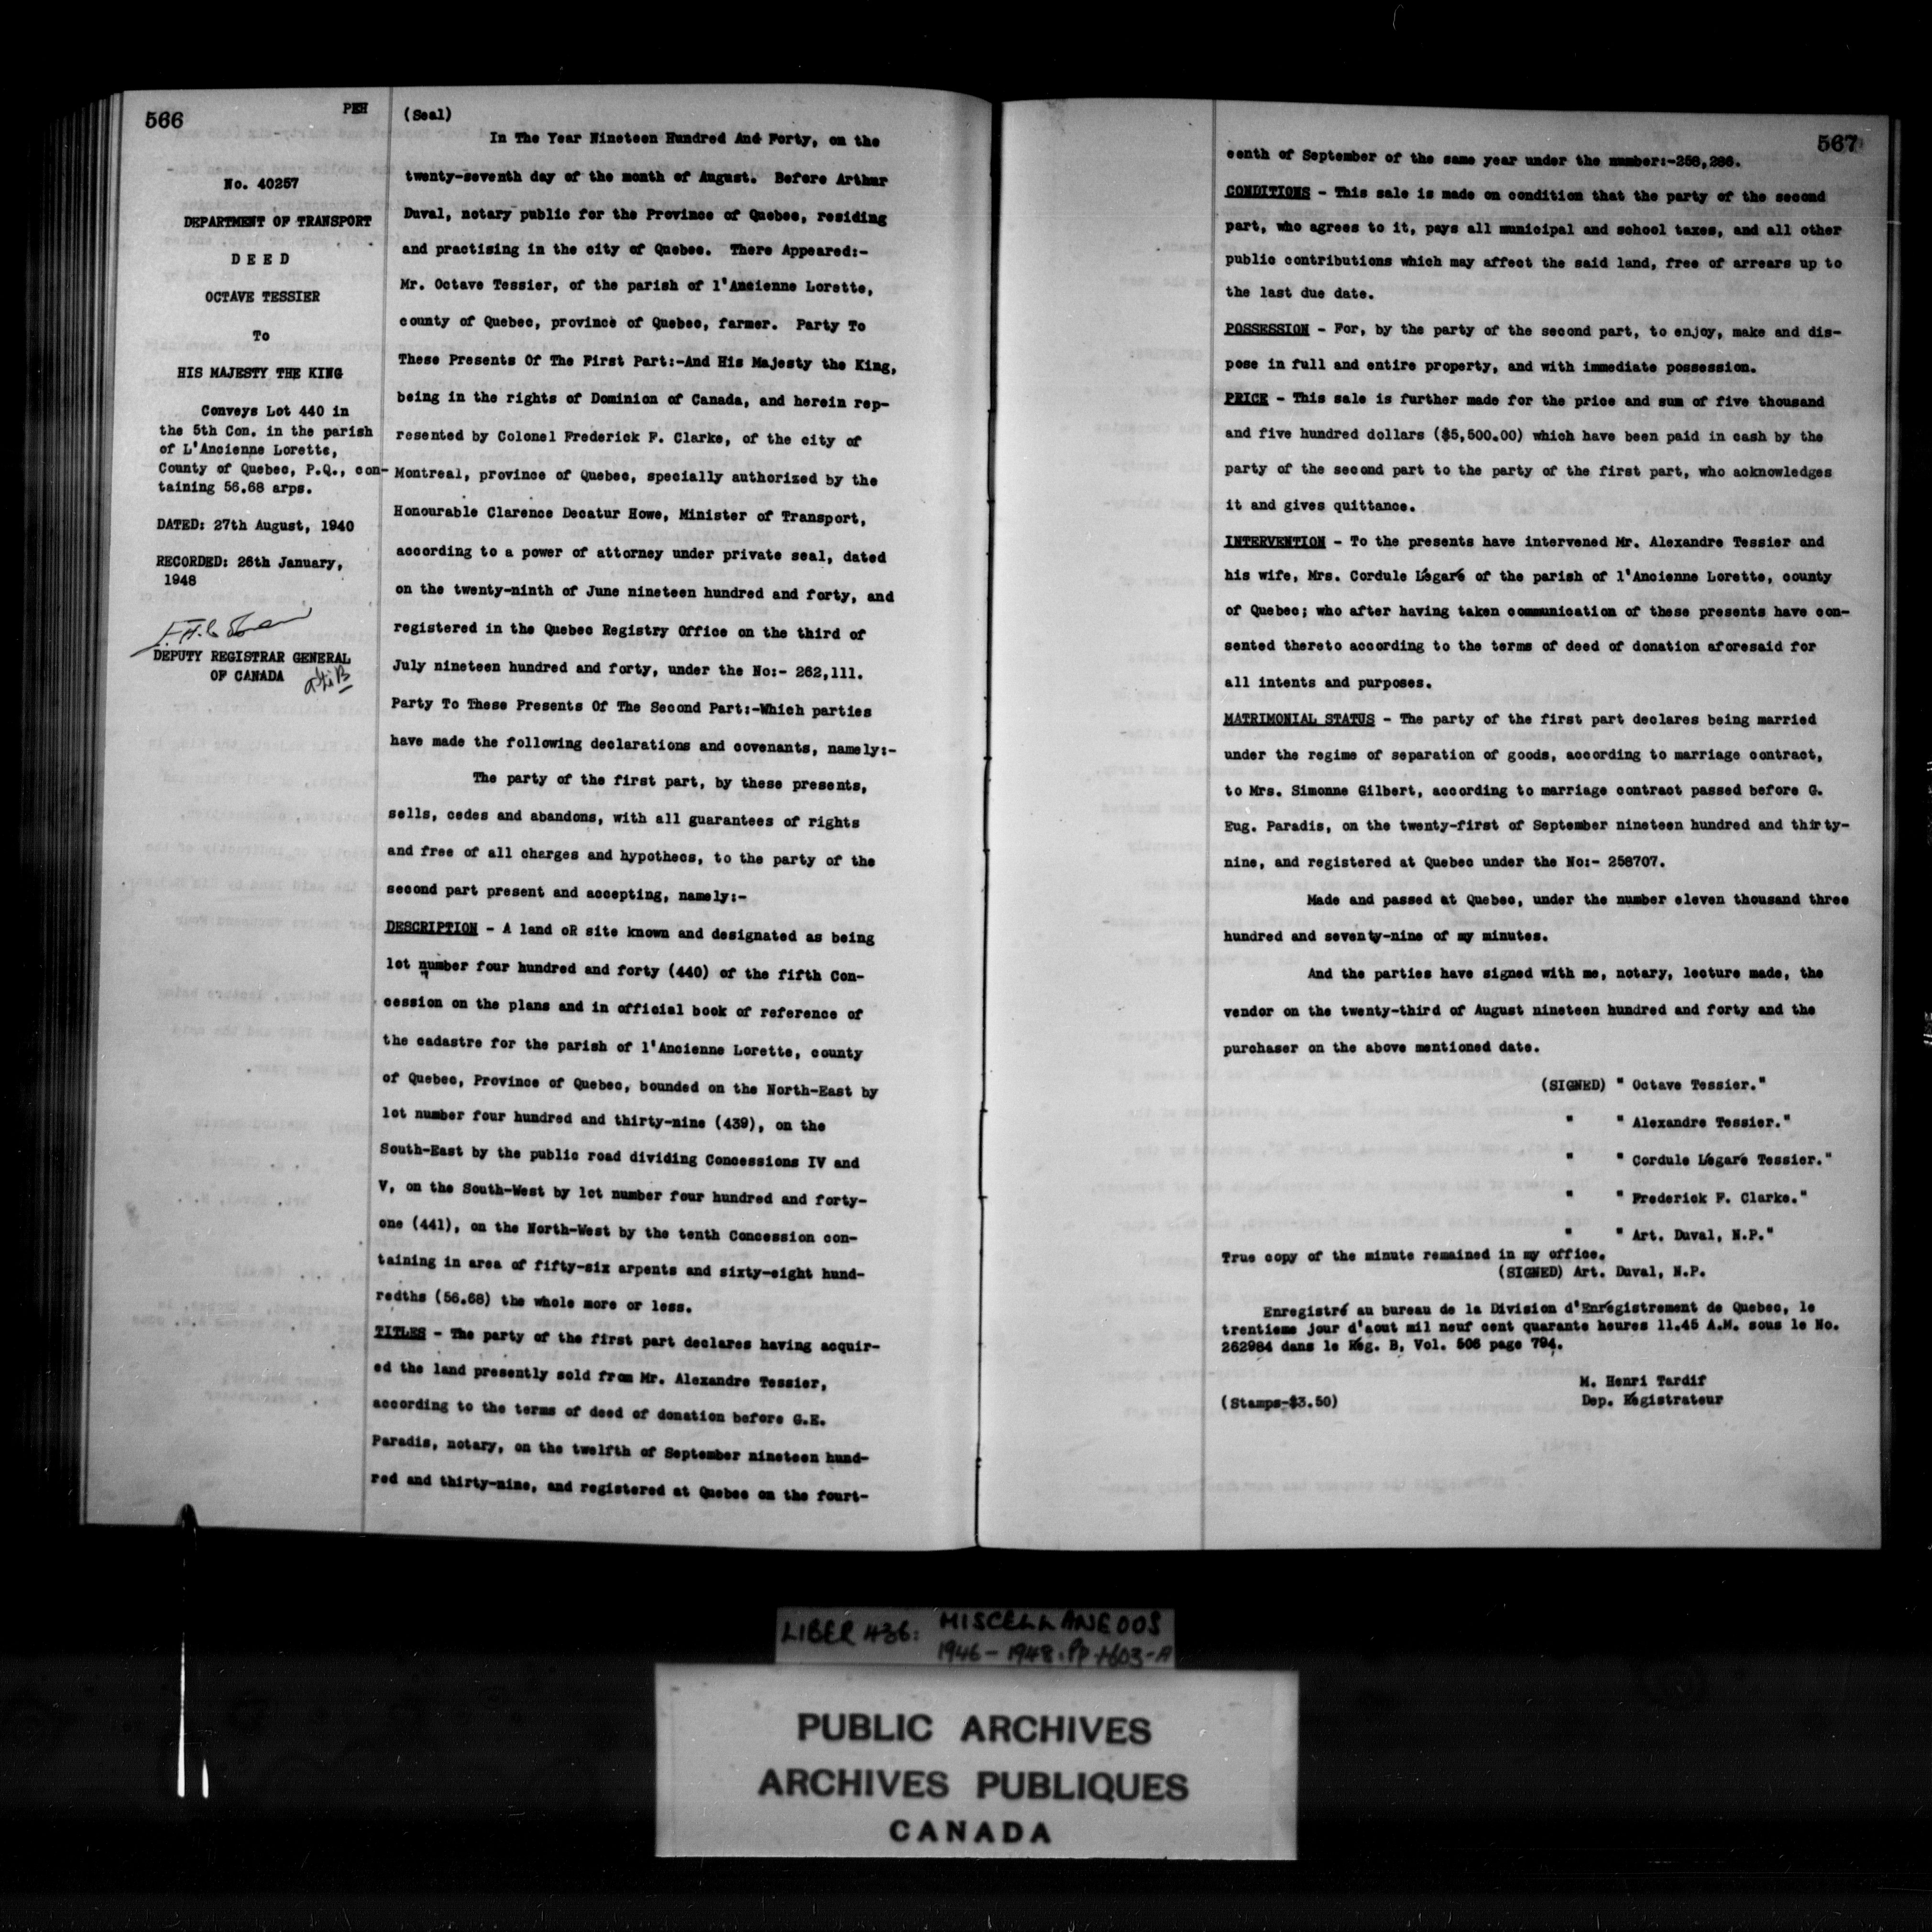 566
PEH
No. 40257
DEPARTMENT OF TRANSPORT
D E E D
OCTAVE TESSIER
To
HIS MAJESTY THE KING
Conveys Lot 440 in
the 5th Con. in the parish
of L'Ancienne Lorette,
County of Quebec, P.Q., con-
taining 56.68 arps.
DATED: 27th August, 1940
RECORDED: 26th January,
1948
DEPUTY REGISTRAR GENERAL
OF CANADA
(Seal)
In The Year Nineteen Hundred And Forty, on the
twenty-seventh day of the month of August. Before Arthur
Duval, notary public for the Province of Quebec, residing
and practising in the city of Quebec. There Appeared:-
Mr. Octave Tessier, of the parish of l'Ancienne Lorette,
county of Quebec, province of Quebec, farmer. Party To
These Presents Of The First Part:-And His Majesty the King,
being in the rights of Dominion of Canada, and herein rep-
resented by Colonel Frederick F. Clarke, of the city of
Montreal, province of Quebec, specially authorized by the
Honourable Clarence Decatur Howe, Minister of Transport,
according to a power of attorney under private seal, dated
on the twenty-ninth of June nineteen hundred and forty, and
registered in the Quebec Registry Office on the third of
July nineteen hundred and forty, under the No:- 262,111.
Party To These Presents Of The Second Part:-Which parties
have made the following declarations and covenants, namely:-
The party of the first part, by these presents,
sells, cedes and abandons, with all guarantees of rights
and free of all charges and hypothecs, to the party of the
second part present and accepting, namely:-
DESCRIPTION - A land oR site known and designated as being
lot number four hundred and forty (440) of the fifth Con-
cession on the plans and in official book of reference of
the cadastre for the parish of l'Ancienne Lorette, county
of Quebec, Province of Quebec, bounded on the North-East by
lot number four hundred and thirty-nine (439), on the
South-East by the public road dividing Concessions IV and
V, on the South-West by lot number four hundred and forty-
one (441), on the North-West by the tenth Concession con-
taining in area of fifty-six arpents and sixty-eight hund-
redths (56.68) the whole more or less.
TITLES - The party of the first part declares having acquir-
ed the land presently sold from Mr. Alexandre Tessier,
according to the terms of deed of donation before G.E.
Paradis, notary, on the twelfth of September nineteen hund-
red and thirty-nine, and registered at Quebec on the fourt-
567
eenth of September of the same year under the number:-258,286.
CONDITIONS - This sale is made on condition that the party of the second
part, who agrees to it, pays all municipal and school taxes, and all other
public contributions which may affect the said land, free of arrears up to
the last due date.
POSSESSION - For, by the party of the second part, to enjoy, make and dis-
pose in full and entire property, and with immediate possession.
PRICE - This sale is further made for the price and sum of five thousand
and five hundred dollars ($5,500.00) which have been paid in cash by the
party of the second part to the party of the first part, who acknowledges
it and gives quittance.
INTERVENTION - To the presents have intervened Mr. Alexandre Tessier and
his wife, Mrs. Cordule Légaré of the parish of l'Ancienne Lorette, county
of Quebec; who after having taken communication of these presents have con-
sented thereto according to the terms of deed of donation aforesaid for
all intents and purposes.
MATRIMONIAL STATUS - The party of the first part declares being married
under the regime of separation of goods, according to marriage contract,
to Mrs. Simonne Gilbert, according to marriage contract passed before G.
Eug. Paradis, on the twenty-first of September nineteen hundred and thirty-
nine, and registered at Quebec under the No:- 258707.
Made and passed at Quebec, under the number eleven thousand three
hundred and seventy-nine of my minutes.
And the parties have signed with me, notary, lecture made, the
vendor on the twenty-third of August nineteen hundred and forty and the
purchaser on the above mentioned date.
(SIGNED) " Octave Tessier."
" " Alexandre Tessier."
" " Cordule Légaré Tessier."
" " Frederick F. Clarke."
" " Art. Duval, N.P."
True copy of the minute remained in my office.
(SIGNED) Art. Duval, N.P.
Enregistré au bureau de la Division d'Enrégistrement de Quebec, le
trentieme jour d'aout mil neuf cent quarante heures 11.45 A.M. sous le No.
262984 dans le Rég. B, Vol. 506 page 794.
M. Henri Tardif
(Stamps-$3.50) Dep. Régistrateur
LIBER 436: MISCELLANEOUS
1946 - 1948. PP 1-603-A
PUBLIC ARCHIVES
ARCHIVES PUBLIQUES
CANADA